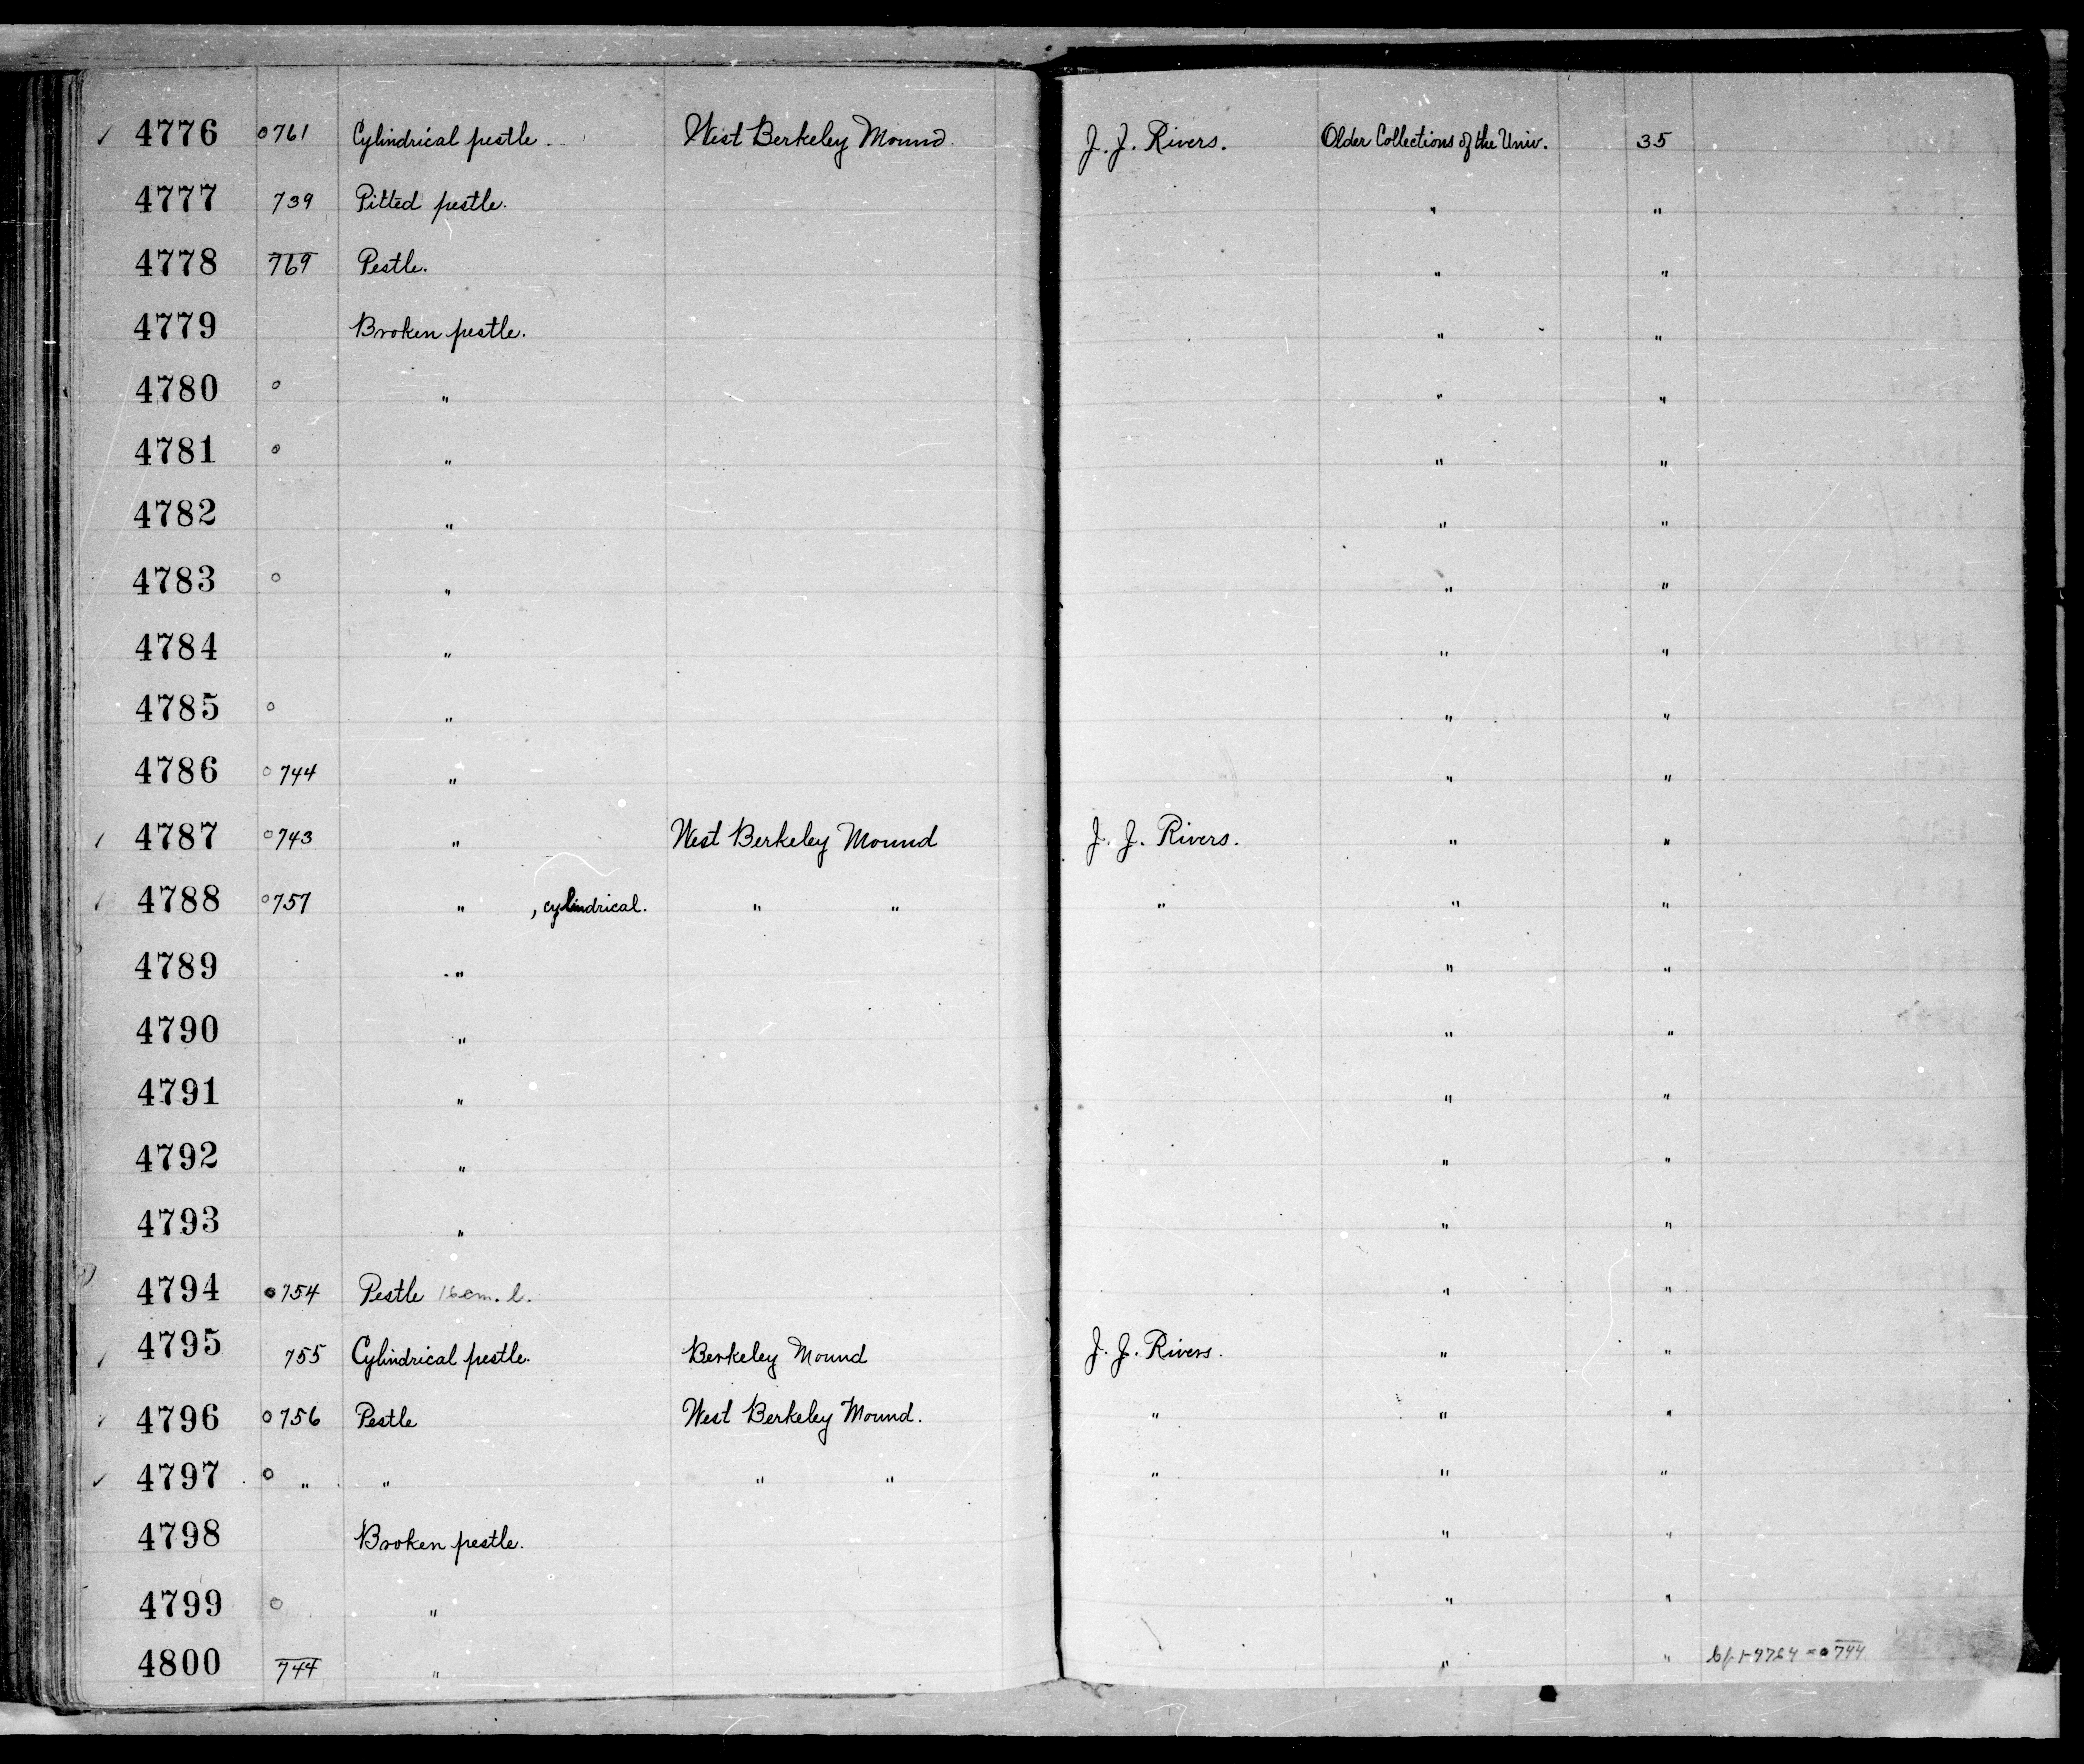 ✓ 4776 0761 Cylindrical pestle. West Berkeley Mound. J. J. Rivers. Older Collections of the Univ. 35
4777 739 Pitted pestle. " "
4778 769 Pestle. " "
4779 Broken pestle. " "
4780 o " " "
4781 o " " "
4782 " " "
4783 o " " "
4784 " " "
4785 o " " "
4786 o 744 " " "
✓ 4787 o 743 " West Berkeley Mound J. J. Rivers. " "
✓ 4788 o 757 " , cylindrical. " " " " "
4789 " " "
4790 " " "
4791 " " "
4792 " " "
4793 " " "
4794 o 754 Pestle 16 cm. l. " "
✓ 4795 755 Cylindrical pestle. Berkeley Mound J. J. Rivers. " "
✓ 4796 o 756 Pestle West Berkeley Mound. " " "
✓ 4797 o " " " " " " "
4798 Broken pestle. " "
4799 o " " "
4800 744 " " " 1-9764 = 0744